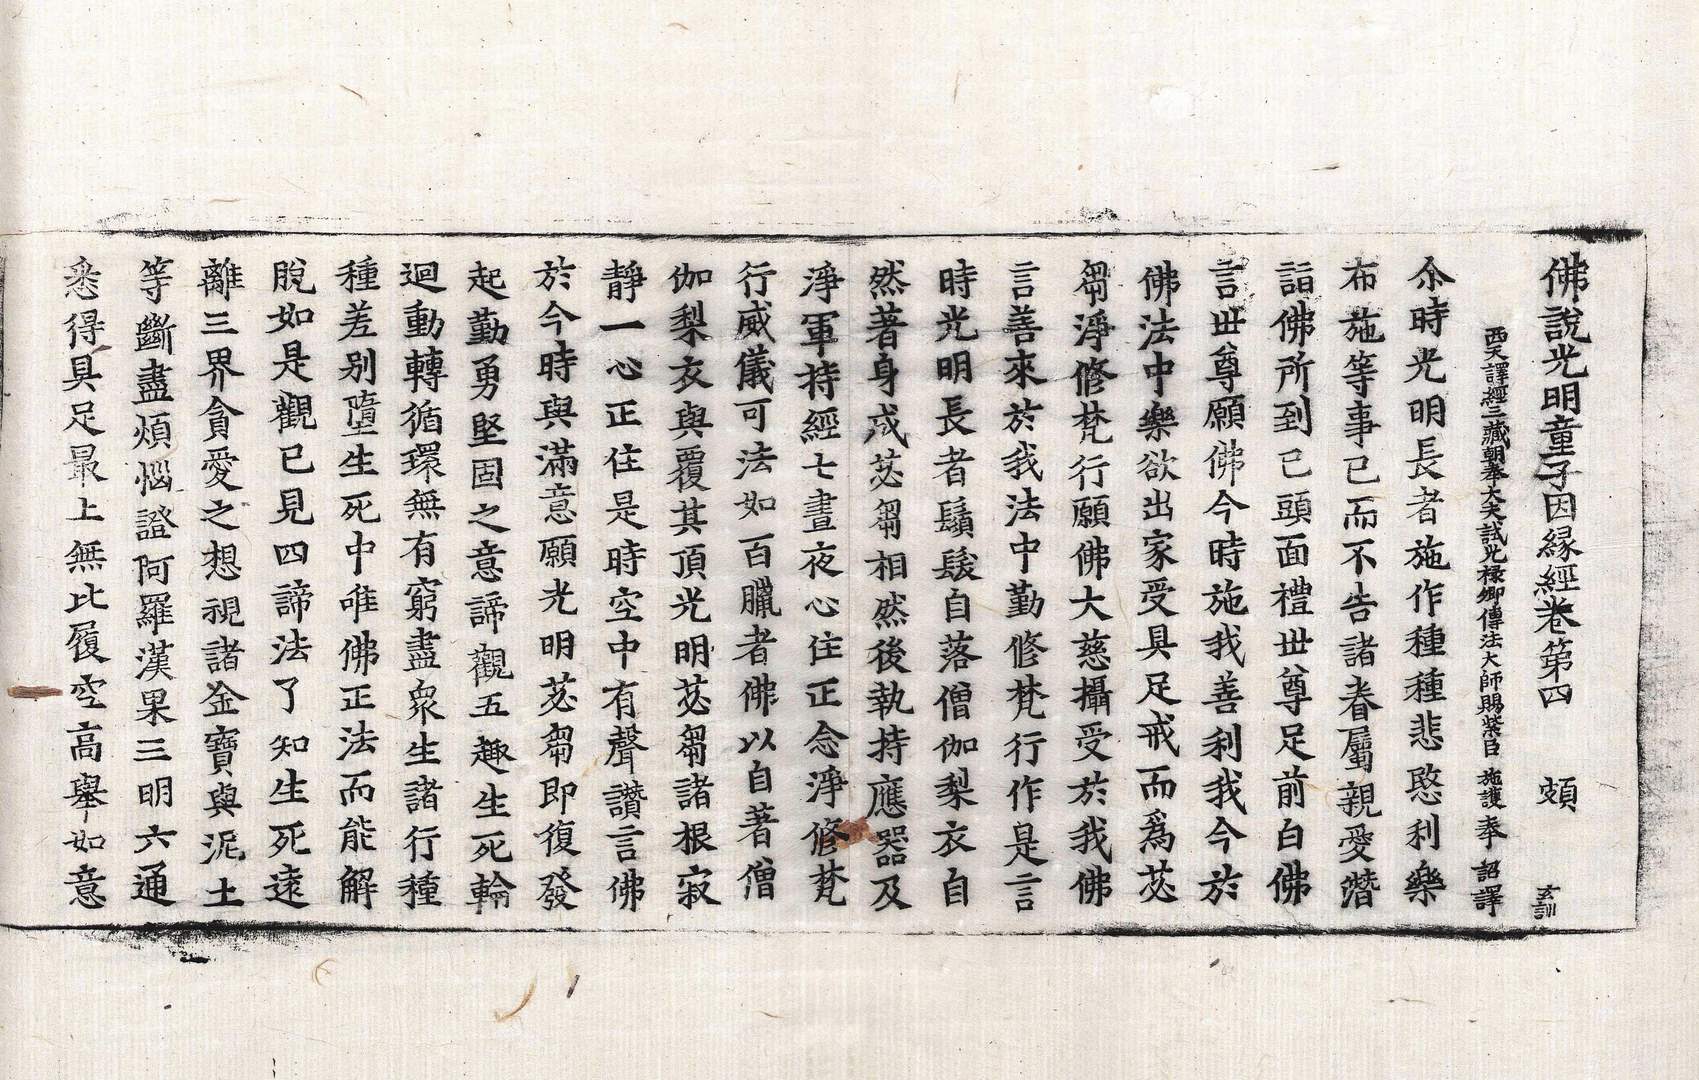 佛說光明童子因緣經卷第四 頗
玄訓
西天譯經三藏朝奉大夫試光祿卿傳法大師賜紫臣 施護 奉 詔譯
尒時光明長者施作種種悲愍利樂
布施等事已而不告諸眷屬親愛潛
詣佛所到已頭面禮世尊足前白佛
言世尊願佛今時施我善利我今於
佛法中樂欲出家受具足戒而爲苾
芻淨修梵行願佛大慈攝受於我佛
言善來於我法中勤修梵行作是言
時光明長者鬚髮自落僧伽梨衣自
然著身成苾芻相然後執持應器及
淨軍持經七晝夜心住正念淨修梵
行威儀可法如百臘者佛以自著僧
伽梨衣與覆其頂光明苾芻諸根寂
靜一心正住是時空中有聲讚言佛
於今時與滿意願光明苾芻即復發
起勤勇堅固之意諦觀五趣生死輪
迴動轉循環無有窮盡衆生諸行種
種差別墮生死中唯佛正法而能解
脫如是觀已見四諦法了知生死遠
離三界貪愛之想視諸金寶與泥土
等斷盡煩惱證阿羅漢果三明六通
悉得具足最上無比履空高舉如意